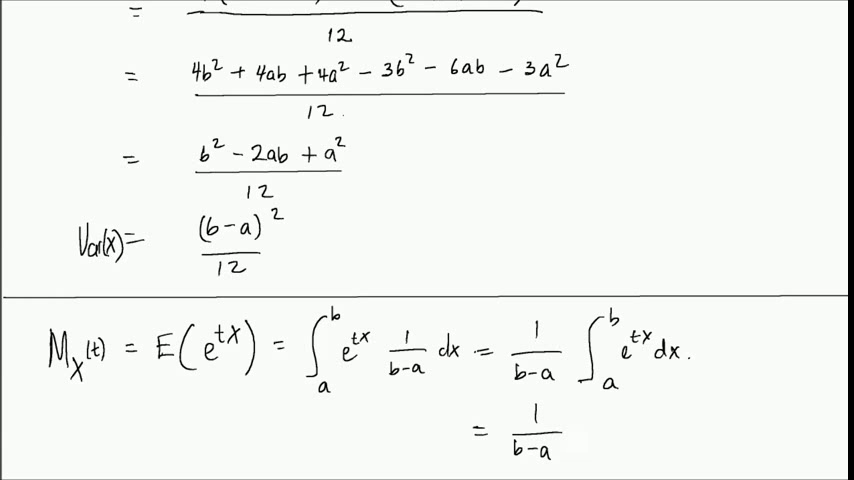 = 12
= 4b² + 4ab + 4a² - 3b² - 6ab - 3a² / 12
= b² - 2ab + a² / 12
Var(X) = (b-a)² / 12
M_X(t) = E(e^{tX}) = ∫_a^b e^{tx} 1/(b-a) dx = 1/(b-a) ∫_a^b e^{tx} dx.
= 1/(b-a)